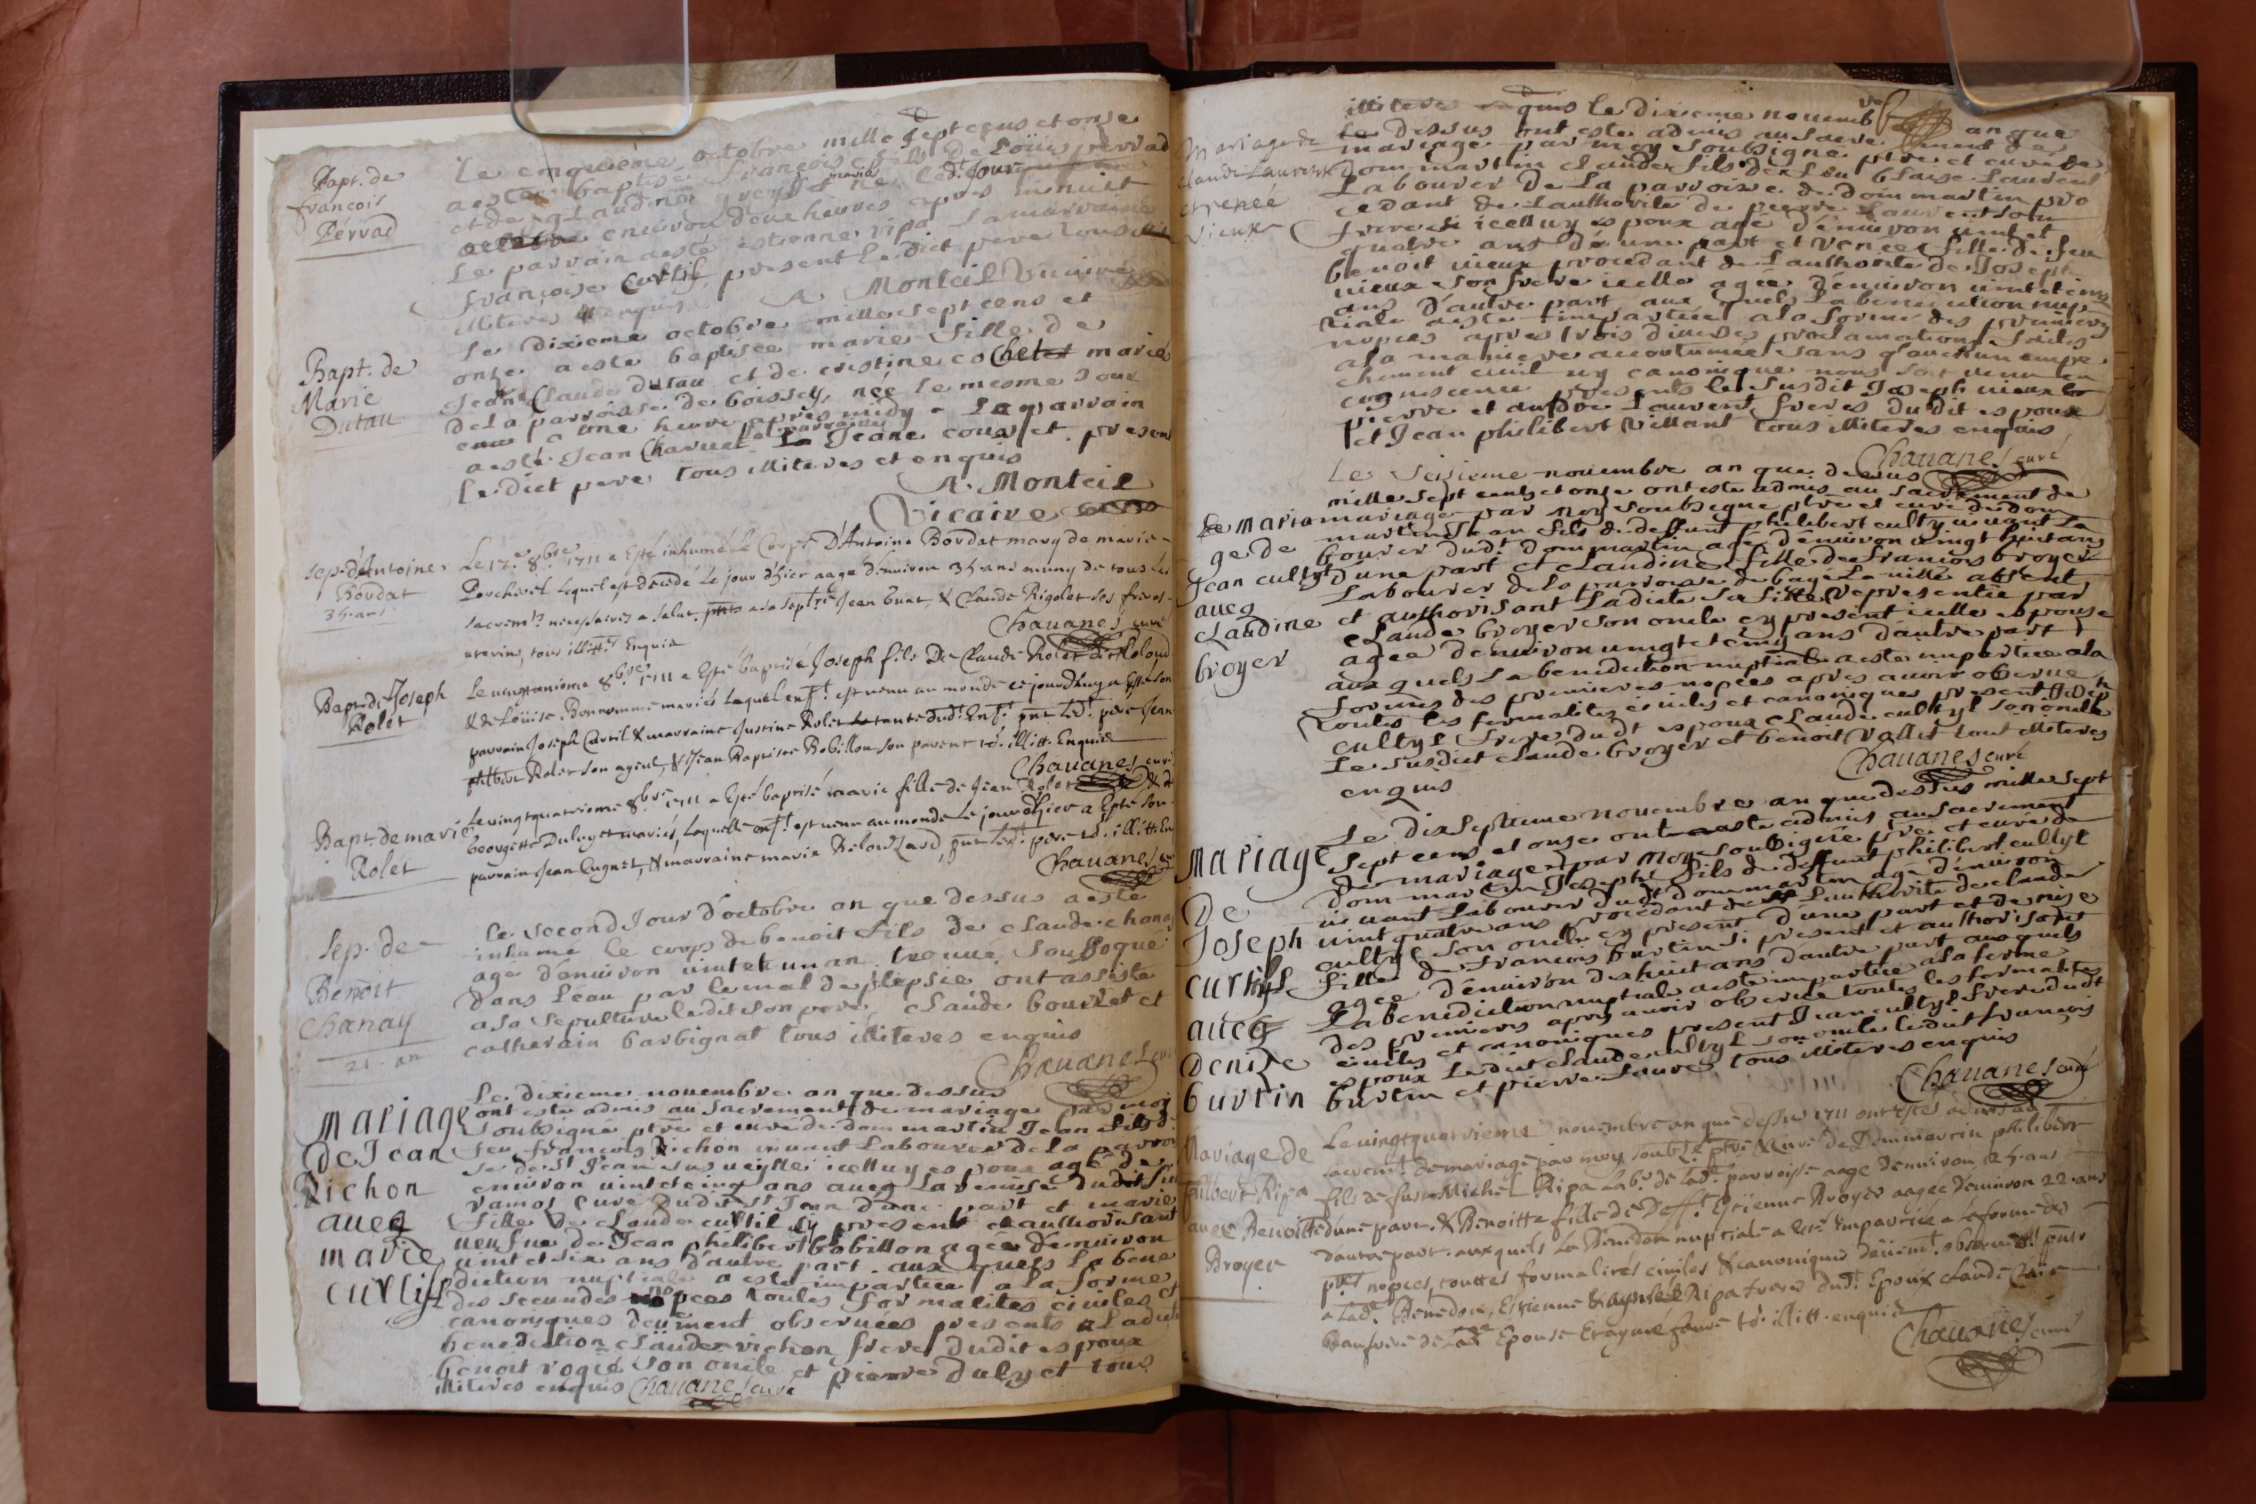 Bapt. de
francois
Pervad
Le cinquieme octobre mille sept cens et onze
a esté baptisé francois fils de Loüis pervad
et de claudine maries né led.t jour
environ douze heures apres minuit
Le parrain a esté estienne ripa la marraine
françoise Curtil, present Le dict pere tous
illiteres enquis A Monteil Vicaire
Bapt. de
Marie
Dutau
Le dixieme octobre mille sept cens et
onze a esté baptisée marie fille de
Jean Claude dutau et de cristine cochet mariés
de La parroisse de boissey, née le mesme Jour
a une heure apres midy. Le parrain
a esté Jean Charuet La marraine Jeane couset. present
le dict pere tous illiteres et enquis
A. Monteil
Vicaire
sep. d'Antoine
Bordat
35 ans
Le 17.e 8bre 1711 a Esté inhumé Le Corps D'Antoine Bordat mary de marie
Perchivel Lequel est décedé Le jour d'hier aagé d'environ 35 ans muny de tous les
sacrem.ts necessaires a salut. pnts a sa sepltre Jean buat, & Claude Rigolet ses freres
uterins, tous illitt.s Enquis Chauanes curé
Bapt. de Joseph
Rolet
Le 8bre 1711 a Esté baptisé Joseph fils De Claude Rolet
& de Loüise Bonnomme mariés Lequel enf.t est venu au monde ce jourdhuy a Esté son
parrain Joseph Curtil & marraine Justine Rolet tante dud.t Enf.t pnt Led.t pere Jean
philbert Rolet son ayeul, & Jean Baptiste Bobillon son parent t.s illitt. Enquis
Chauanes curé
Bapt. de marie
Rolet
Le vingtquatrieme 8bre 1711 a Esté baptisé marie fille de Jean Rolet & de
Georgette Duluyet mariés, Laquelle enf.t est venu au monde Le jour d'hier a Esté son
parrain Jean Cugnet, & marraine marie Relourzard, pnt Led.t pere t.s illitt. En
Chauanes
Sep. de
Benoit
Chanay
21. an
Le second Jour d'octobre an que dessus a esté
inhumé le corps de benoit fils de claude chanay
agé d'environ vint et un an trouvé souffoqué
dans L'eau par le mal de pilepsie ont assisté
a sa sepulture le dit son pere, claude bourlet et
catherain barbignat tous illiteres enquis
Chauanes
mariage
De Jean
Richon
aueq
marie
curtil
Le dixieme nouembre an que dessus
ont esté admis au sacrement de mariage par moy
soubsigné ptre et curé de dommartin Jean fils de
feu francois Richon vivant Labourer de La parroi
se de St Jean sus veyle icelluy espoux agé d'e
environ vint et cinq ans aueq La
ramos curé dudit St Jean d'une part et marie
fille de claude curtil cy present et authorisant
veufue de Jean philibert bobillon agée d'enuiron
vint et six ans d'autre part. aux quels La bene
diction nuptiale a esté impartie a La forme
des secundes nopces toutes formalites civiles et
canoniques deüement observées presents a Ladite
benediction claude richon frere dudit espoux
benoit rogié son oncle et pierre duly et tous
illiteres enquis Chauanes curé
Mariage de
claude Laurent
et renée
vieux
illiteres enquis le dixieme novembre an que
le dessus ont este admis au sacrement de
mariage par moy soubsigné ptre et curé de
dommartin claude fils de feu blaise Laurent
Labourer de La parroisse de dommartin pro
cedant de L'authorite de pierre Laurent son
frere icelluy espoux agé d'environ vint et
quatre ans d'une part et renee fille de feu
benoit vieux procedant de L'authorite de Joseph
vieux son frere icelle agée d'environ vint et cinq
ans d'autre part aux quels La benediction nup
tiale a esté impartie a la forme des premieres
nopces apres trois diverses proclamations faites
a la maniere accoutumée sans qu'aucun empe
chement civil ny canonique nous soit venu en
cognoissance presents le susdit Joseph vieux
pierre et andre Laurent freres dudit espoux
et Jean philibert Villant tous illiteres enquis
Chauanes curé
Le mariage
ge de
Jean cultyl
aueq
claudine
broyer
Le Seizieme nouembre an que dessus
mille sept cents et onze ont esté admis au sacrement de
mariage par moy soubsigné ptre et curé de dom
martin Jean fils de deffunt philibert cultyl vivant La
bourer dudt dommartin agé d'environ vingt huit ans
d'une part et claudine fille de francois broyer
Labourer de la parroisse de bagé La ville absent
et authorisant Ladicte sa fille representée par
claude broyer son oncle cy present icelle espouse
agée d'environ vingt et cinq ans d'autre part
aux quels La benediction nuptiale a esté impartie a la
forme des premieres nopces apres avoir observé
toutes les formalites civiles et canoniques present Joseph
cultyl frere dudt espoux claude cultyl son oncle
Le susdict claude broyer et benoit Vallit tout illiteres
enquis Chauanes curé
mariage
De
Joseph
curtyl
aueq
Denize
burtin
Le dixseptieme nouembre an que dessus mille sept
sept cens et onze ont esté admis au sacrement
de mariage par moy soubsigné ptre et curé de
dom martin Joseph fils de deffunt philibert cultyl
vivant Labourer dudt dommartin agé d'environ
vint quatre ans procedant de L'authorite de claude
cultyl son oncle cy present d'une part et denise
fille de francois burtin si present et authorisant
agée d'environ dixhuit ans d'autre part aux quels
La benediction nuptiale a esté impartie a la forme
des premieres apres avoir observé toutes les formalites
civiles et canoniques present Jean cultyl frere dudt
espoux Ledict claude cultyl son oncle ledict francois
burtin et pierre sauvé tous illiteres enquis
Chauanes curé
Mariage de
philibert Ripa
avec Benoitte
Broyer
Le vingtquatrieme nouembre an que dessus 1711 ont estés admis au
sacrem.t de mariage par moy soubs.né ptre & curé de Dommartin philibert
fils de fust Michel Ripa Lab.r de Lad.te parroisse aagé d'environ 25 ans
d'une part, & Benoitte fille de Deff.t Estienne Broyer aagee d'environ 22 ans
d'autre part. auxquels La Benedon nuptiale a esté impartie a la forme des
p.res nopces, touttes formalités civiles & canoniques deüem.t observées pnts
a Lad.te Benedon, Estienne & aymé Ripa freres dud.t Epoux claude
beaufrere de Lad.te Epouse Et aymé fauré t.s illitt. enquis
Chauanes curé